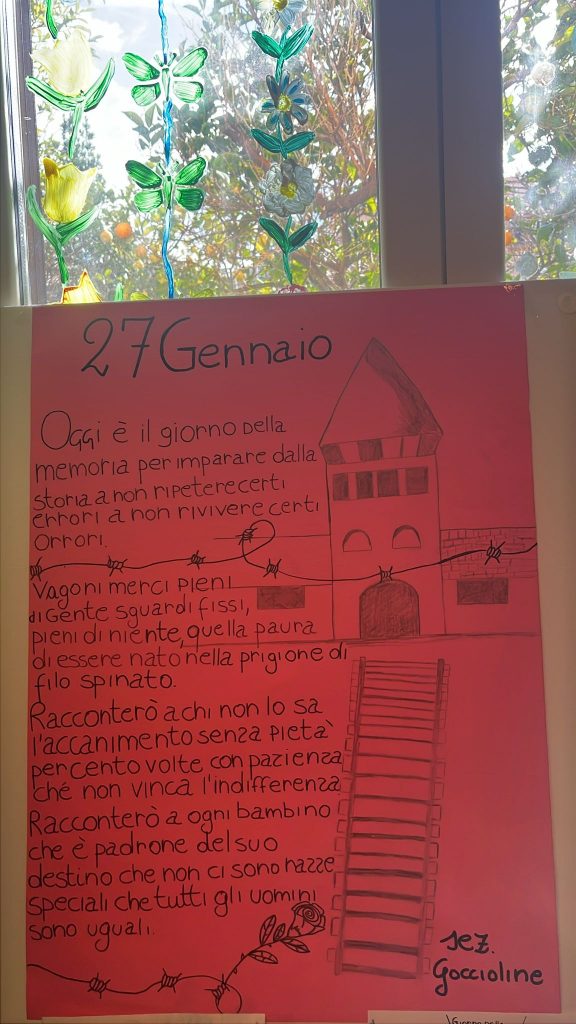 27 Gennaio
Oggi è il giorno della
memoria per imparare dalla
storia a non ripetere certi
errori a non rivivere certi
orrori.
Vagoni merci pieni
di gente sguardi fissi,
pieni di niente, quella paura
di essere nato nella prigione di
filo spinato.
Racconterò a chi non lo sa
l'accanimento senza pietà
per cento volte con pazienza
ché non vinca l'indifferenza
Racconterò a ogni bambino
che è padrone del suo
destino che non ci sono razze
speciali che tutti gli uomini
sono uguali.
sez.
Goccioline